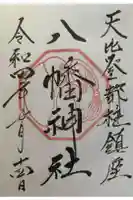 天比登都柱鎮座
八幡神社
令和四年 月 日